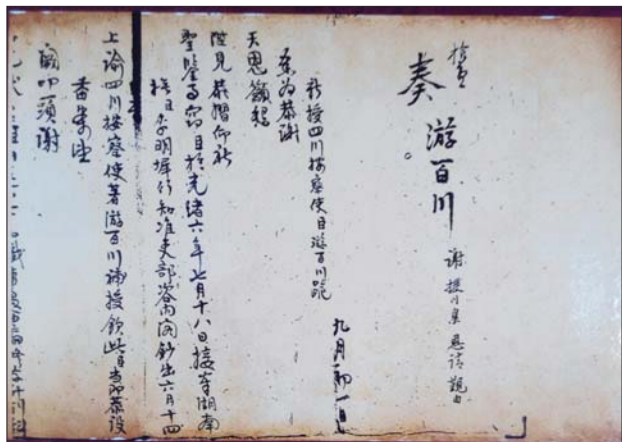 奏
游百川
謝授川臬恩請覲由
九月初一日
新授四川按察使臣游百川跪
奏為恭謝
天恩籲懇
陛見恭摺仰祈
聖鑒事竊臣於光緒六年七月十八日接湖南
李明墀行知准吏部咨內閣鈔出六月十四
上諭四川按察使著游百川補授欽此臣當即恭設
香案望
闕叩頭謝